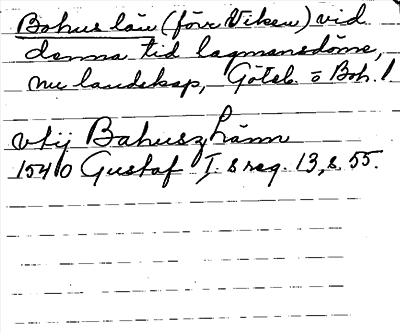 Bohus län (förr Viken) vid
denna tid lagmansdöme,
nu landskap, Göteb. o Boh. l
vtij Bahusz länn
1540 Gustaf I:s reg. 13, s. 55.